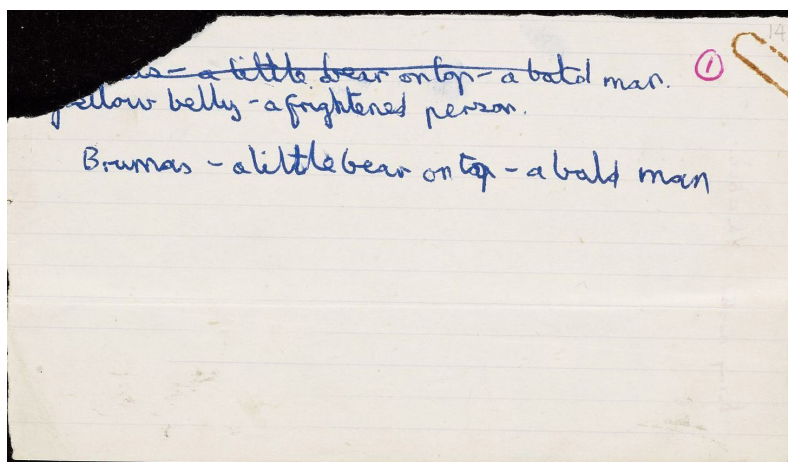 a little bear on top - a bald man. ①
yellow belly - a frightened person.
Brumas - a little bear on top - a bald man